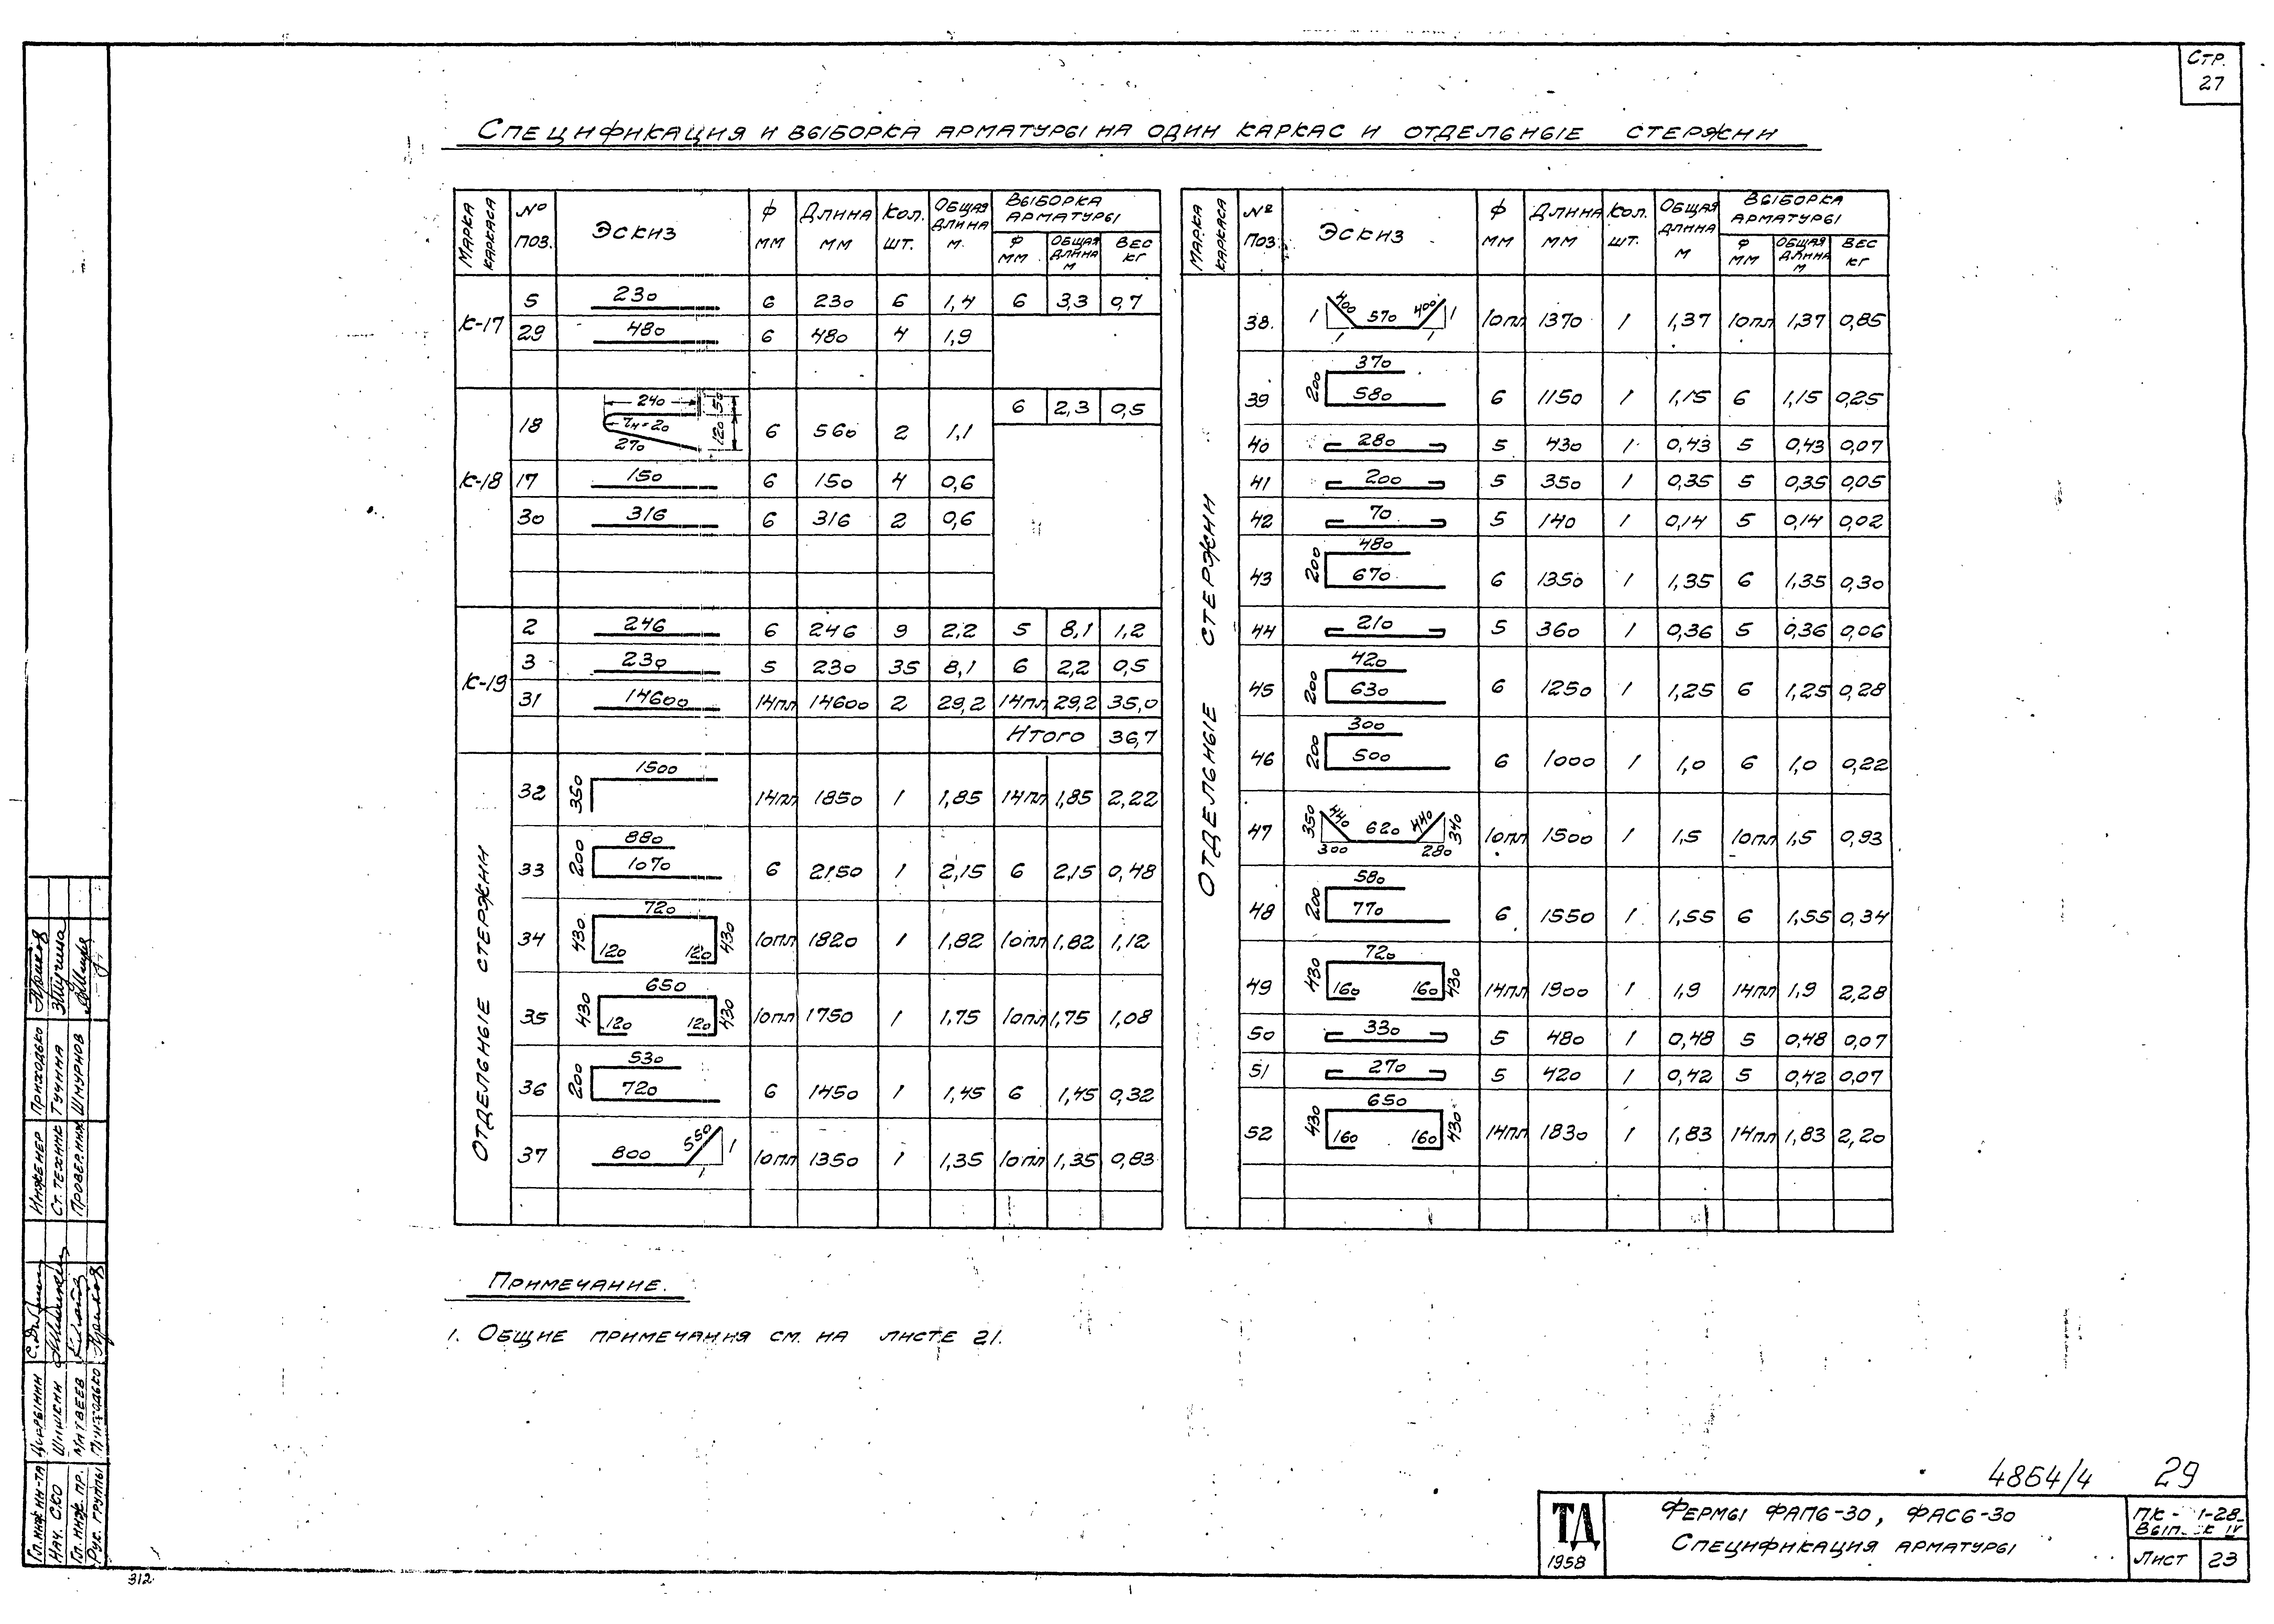 Стр.
27
Спецификация и выборка арматуры на один каркас и отдельные стержни
Марка каркаса | № поз. | Эскиз | Ф мм | Длина мм | Кол. шт. | Общая длина м. | Выборка арматуры | Ф мм | Общая длина м | Вес кг
К-17
5 | 230 | 6 | 230 | 6 | 1,4 | 6 | 3,3 | 0,7
29 | 480 | 6 | 480 | 4 | 1,9
К-18
18 | 240 50 120 270 | 6 | 560 | 2 | 1,1 | 6 | 2,3 | 0,5
17 | 150 | 6 | 150 | 4 | 0,6
30 | 316 | 6 | 316 | 2 | 0,6
К-19
2 | 246 | 6 | 246 | 9 | 2,2 | 5 | 8,1 | 1,2
3 | 230 | 5 | 230 | 35 | 8,1 | 6 | 2,2 | 0,5
31 | 14600 | 14пл | 14600 | 2 | 29,2 | 14пл | 29,2 | 35,0
Итого 36,7
Отдельные стержни
32 | 1500 350 | 14пл | 1850 | 1 | 1,85 | 14пл | 1,85 | 2,22
33 | 880 200 1070 | 6 | 2150 | 1 | 2,15 | 6 | 2,15 | 0,48
34 | 720 430 120 120 430 | 10пл | 1820 | 1 | 1,82 | 10пл | 1,82 | 1,12
35 | 650 430 120 120 430 | 10пл | 1750 | 1 | 1,75 | 10пл | 1,75 | 1,08
36 | 530 200 720 | 6 | 1450 | 1 | 1,45 | 6 | 1,45 | 0,32
37 | 800 550 1 1 | 10пл | 1350 | 1 | 1,35 | 10пл | 1,35 | 0,83
Марка каркаса | № поз. | Эскиз | Ф мм | Длина мм | Кол. шт. | Общая длина м | Выборка арматуры | Ф мм | Общая длина м | Вес кг
Отдельные стержни
38. | 1 400 570 400 1 1 1 | 10пл | 1370 | 1 | 1,37 | 10пл | 1,37 | 0,85
39 | 370 200 580 | 6 | 1150 | 1 | 1,15 | 6 | 1,15 | 0,25
40 | 280 | 5 | 430 | 1 | 0,43 | 5 | 0,43 | 0,07
41 | 200 | 5 | 350 | 1 | 0,35 | 5 | 0,35 | 0,05
42 | 70 | 5 | 140 | 1 | 0,14 | 5 | 0,14 | 0,02
43 | 480 200 670 | 6 | 1350 | 1 | 1,35 | 6 | 1,35 | 0,30
44 | 210 | 5 | 360 | 1 | 0,36 | 5 | 0,36 | 0,06
45 | 420 200 630 | 6 | 1250 | 1 | 1,25 | 6 | 1,25 | 0,28
46 | 300 200 500 | 6 | 1000 | 1 | 1,0 | 6 | 1,0 | 0,22
47 | 350 440 620 440 340 300 280 | 10пл | 1500 | 1 | 1,5 | 10пл | 1,5 | 0,93
48 | 580 200 770 | 6 | 1550 | 1 | 1,55 | 6 | 1,55 | 0,34
49 | 720 430 160 160 430 | 14пл | 1900 | 1 | 1,9 | 14пл | 1,9 | 2,28
50 | 330 | 5 | 480 | 1 | 0,48 | 5 | 0,48 | 0,07
51 | 270 | 5 | 420 | 1 | 0,42 | 5 | 0,42 | 0,07
52 | 650 430 160 160 430 | 14пл | 1830 | 1 | 1,83 | 14пл | 1,83 | 2,20
Примечание.
1. Общие примечания см. на листе 21.
Инженер Приходько
Ст. техник Тучина
Провер. инж Шмурнов
Гл. инж ин-та Цирынин
Нач. СКО Шишкин
Гл. инж. пр. Матвеев
Рук. группы Приходько
312
4864/4 29
ТД
1958
Фермы ФАП6-30, ФАС6-30
Спецификация арматуры
Лист 23